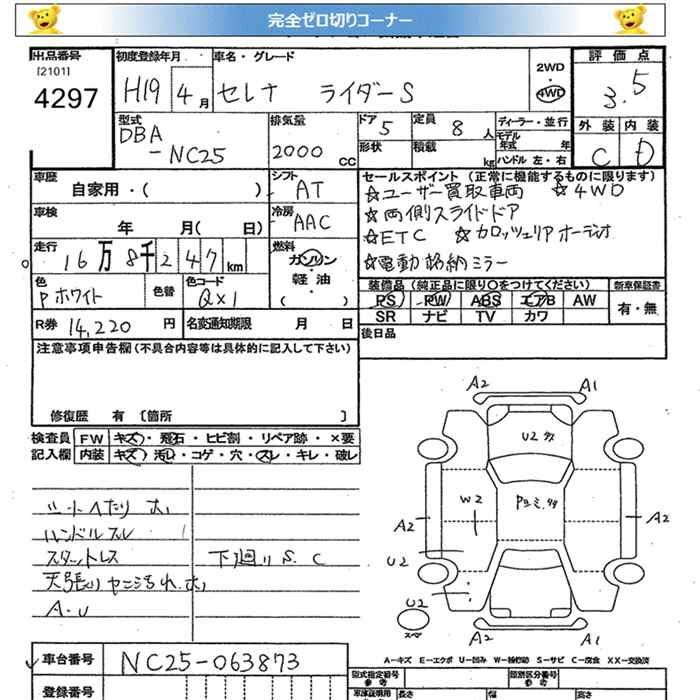 完全ゼロ切りコーナー
出品番号
[2101]
4297
初度登録年月
H19 4月
車名・グレード
セレナ ライダーS
2WD
・
4WD
評価点
3.5
外装 内装
C D
型式
DBA
-NC25
排気量
2000 cc
ドア 5
形状
定員 8人
積載 kg
ディーラー・並行
モデル年式 年
ハンドル 左・右
車歴
自家用・( )
シフト
AT
車検
年 月( 日)
冷房
AAC
走行
16万8千247km
燃料
ガソリン
・
軽油
( )
色
Pホワイト
色替
色コード
QX1
R券 14,220円
名変通知期限 月 日
セールスポイント (正常に機能するものに限ります)
☆ユーザー買取車両 ☆4WD
☆両側スライドドア
☆ETC ☆カロッツェリアオーディオ
☆電動格納ミラー
装備品 (純正品に限り○をつけてください)
PS PW ABS エアB AW
SR ナビ TV カワ
新車保証書
有・無
後日品
注意事項申告欄(不具合内容等は具体的に記入して下さい)
修復歴 有 [箇所 ]
検査員
記入欄
FW キズ・飛石・ヒビ割・リペア跡・×要
内装 キズ・汚レ・コゲ・穴・スレ・キレ・破レ
シートヘたり 大
ハンドルスレ
スタットレス
下廻りS.C
天張りヤニ汚れ 大
A・U
A2
A1
U2
W2
A2
A2
U2
U2
A2
A1
スペア
A-キズ E-エクボ U-凹み W-補修跡 S-サビ C-腐食 XX-交換済
車台番号 NC25-063873
登録番号
型式指定番号
参考
類別区分番号
参考
車庫証明用
長さ 幅 高さ